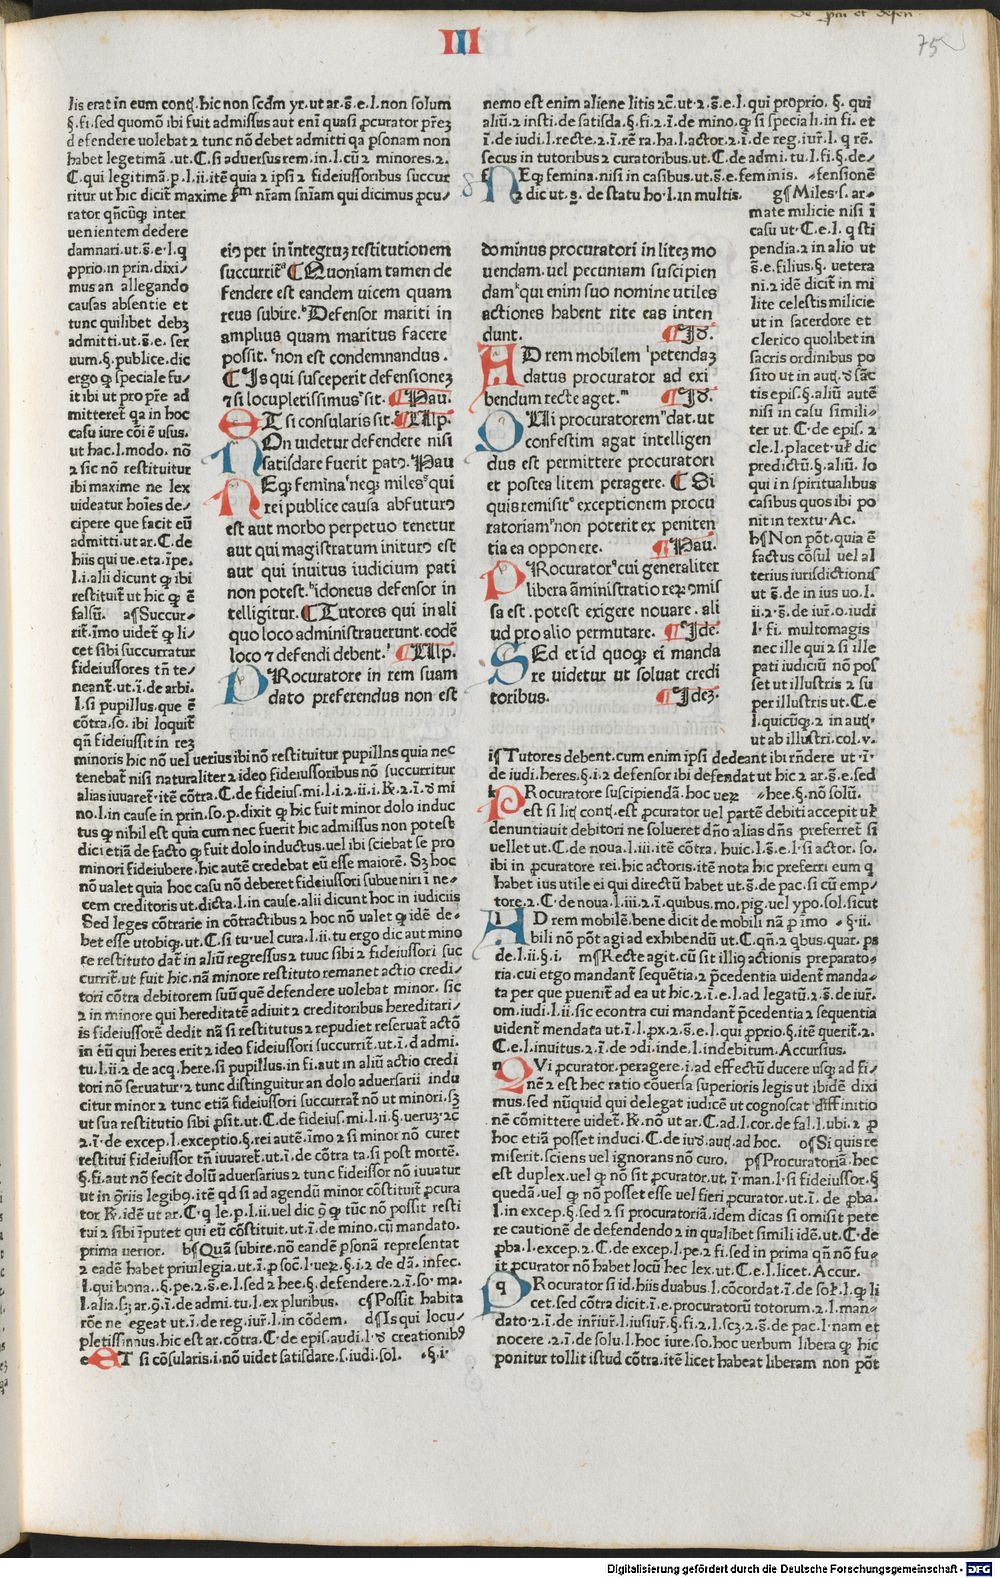 de pcu et defen.
III
75
lis erat in eum contꝭ. hic non scdm yr. ut ar. s̄. e. l. non solum
§. fi. sed quomō ibi fuit admissus aut enī quasi ꝓcurator p̄reꝫ
defendere uolebat ⁊ tunc nō debet admitti qa ꝑsonam non
habet legetimā. ut. C. si aduersus rem. in. l. cū ⁊ minores. ⁊.
C. qui legitimā. p. l. ii. itē quia ⁊ ipsi ⁊ fideiussoribus succur
ritur ut hic dicit̄ maxime ẜm nr̄am sn̄iam qui dicimus ꝓcu⸗
rator qn̄cūqꝫ inter
uenientem dedere
damnari. ut. s̄. e. l. q
ꝓprio. in prin. dixi⸗
mus an allegando
causas absentie et
tunc quilibet debꝫ
admitti. ut. s̄. e. ser
uum. §. publice. dic
ergo ꝙ speciale fu⸗
it ibi ut pro p̄re ad
mitteret̄ qa in hoc
casu iure cōi ē usus.
ut hac. l. modo. nō
⁊ sic nō restituitur
ibi maxime ne lex
uideatur hoīes de⸗
cipere que facit eū
admitti. ut ar. C. de
hiis qui ue. eta. īpe.
l. i. alii dicunt ꝙ ibi
restituit̄ ut hic ꝙ ē
falsū. a¶ Succur⸗
rit̄. īmo uidet̄ ꝙ li⸗
cet sibi succurratur
fideiussores tn̄ te⸗
neant̄. ut. ī. de arbi.
l. si pupillus. que ē
cōtra. so. ibi loquit̄
qn̄ fideiussit in reꝫ
minoris hic nō uel uerius ibi nō restituitur pupillus quia nec
tenebat̄ nisi naturaliter ⁊ ideo fideiussoribus nō succurritur
alias iuuaret̄. itē cōtra. C. de fideius. mi. l. i. ⁊. ii. i. R̄. ⁊. ī. d̄ mi
no. l. in cause in prin. so. p. dixit ꝙ hic fuit minor dolo induc
tus ꝙ nihil est quia cum nec fuerit hic admissus non potest
dici etiā de facto ꝙ fuit dolo inductus. uel ibi sciebat se pro
minori fideiubere. hic autē credebat eū esse maiorē. Sꝫ hoc
nō ualet quia hoc casu nō deberet fideiussori subueniri ī ne⸗
cem creditoris ut. dicta. l. in cause. alii dicunt hoc in iudiciis
Sed leges cōtrarie in cōtractibus ⁊ hoc nō ualet ꝙ idē de⸗
bet esse utobiqꝫ. ut. C. si tu. uel cura. l. ii. tu ergo dic aut mino
re restituto dat̄ in aliū regressus ⁊ tuuc sibi ⁊ fideiussori suc
currit̄. ut fuit hic. nā minore restituto remanet actio credi⸗
tori cōtra debitorem suū quē defendere uolebat minor. sic
⁊ in minore qui hereditatē adiuit ⁊ creditoribus hereditari⸗
is fideiussorē dedit nā si restitutus ⁊ repudiet reseruat̄ actō
in ēū qui heres erit ⁊ ideo fideiussori succurrit̄. ut. ī. d admi.
tu. l. ii. ⁊ de acq. here. si pupillus. in fi. aut in aliū actio credi
tori nō seruatur ⁊ tunc distinguitur an dolo aduersarii indu
citur minor ⁊ tunc etiā fideiussori succurrat̄ nō ut minori. sꝫ
ut sua restitutio sibi ꝓsit. ut. C. de fideius. mi. l. ii. §. ueruꝫ ⁊c
⁊. ī. de excep. l. exceptio. §. rei autē. īmo ⁊ si minor nō curet
restitui fideiussor tn̄ iuuaret̄. ut. ī. de cōtra ta. si post mortē.
§. fi. aut nō fecit dolū aduersarius ⁊ tunc fideissor nō iuuatur
ut in q̄riis legibꝫ. itē qd si ad agendū minor cōstituit̄ ꝓcura
tor R̄. idē ut ar. C. q le. p. l. ii. uel dic ꝙ tūc nō possit resti
tui ⁊ sibi īputet qui eū cōstituit. ut. ī. de mino. cū mandato.
prima uerior. b¶ Quā subire. nō eandē ꝑsonā representat
⁊ eadē habet priuilegia. ut. ī. ꝓ soc̄. l. ueꝝ. §. i. ⁊ de dā. infec.
l. qui bona. §. pe. ⁊. s̄. e. l. sed ⁊ hee. §. defendere. ⁊. ī. so. ma.
l. alia. sꝫ ar. ꝯ̄. ī. de admi. tu. l. ex pluribus. c¶ Possit habita
rōe ne egeat ut. ī. de reg. iur̄. l. in cōdem. d¶ Is qui locu⸗
pletissimus. hic est ar. cōtra. C. de epis. audi. l. d̄ creationibꝰ
e ET si cōsularis. i. nō uidet satisdare. s. iudi. sol. .§. i.
eiꝰ per in integruꝫ restitutionem
succurrit̄ᵃ ¶ Quoniam tamen de
fendere est eandem uicem quam
reus subire.ᵇ Defensor mariti in
amplius quam maritus facere
possit.ᶜ non est condemnandus.
¶ Is qui susceperit defensioneꝫ
⁊ si locupletissimusᵈ sit. ¶ Pau.
ET si consularis sit. ¶ Ulp.
NOn uidetur defendere nisi
satisdare fuerit patꝰ. Pau
NEqꝫ feminaᶠ neqꝫ milesᵍ qui
rei publice causa abfuturꝰ
est aut morbo perpetuo tenetur
aut qui magistratum initurꝰ est
aut qui inuitus iudicium pati
non potest.ʰ idoneus defensor in
telligitur. ¶ Tutores qui in ali
quo loco administrauerunt. eodē
loco ⁊ defendi debent.ⁱ ¶ Ulp.
PRocuratore in rem suam
dato preferendus non est
nemo est enim aliene litis ⁊c̄. ut. ⁊. s̄. e. l. qui proprio. §. qui
aliū. ⁊ insti. de satisda. §. fi. ⁊. ī. de mino. ꝙ si speciali. in fi. et
ī. de iudi. l. recte. ⁊. ī. rē ra. ha. l. actor. ⁊. ī. de reg. iur̄. l. q rē.
secus in tutoribus ⁊ curatoribus. ut. C. de admi. tu. l. fi. §. de⸗
f NEqꝫ femina. nisi in casibus. ut. s̄. e. feminis. ⸗fensionē
⁊ dic ut. s̄. de statu ho. l. in multis. g¶ Miles. s. ar⸗
mate milicie nisi ī
casu ut. C. e. l. q sti
pendia. ⁊ in alio ut
s̄. e. filius. §. uetera
ni. ⁊ idē dicit̄ in mi
lite celestis milicie
ut in sacerdore et
clerico quolibet in
sacris ordinibus po
sito ut in autꝭ. d̄ sāc
tis epis. §. aliū autē
nisi in casu simili⸗
ter ut. C. de epis. ⁊
cle. l. placet. uł dic
predictū. §. aliū. lo
qui in spiritualibus
casibus quos ibi po
nit in textu. Ac.
h¶ Non pōt. quia ē
factus cōsul uel al
terius iurisdictionis
ut s̄. de in ius uo. l.
ii. ⁊. s̄. de iur̄. o. iudi
l. fi. multomagis
nec ille qui ⁊ si ille
pati iudiciū nō pos
set ut illustris ⁊ su
per illustris ut. C. e
l. quicūqꝫ. ⁊ in autꝭ.
ut ab illustri. col. v.
i¶ Tutores debent. cum enim ipsi dedeant ibi rn̄dere ut. ī.
de iudi. heres. §. i. ⁊ defensor ibi defendat ut hic ⁊ ar. s̄. e. sed
k PRocuratore suscipiendā. hoc ueꝝ ⸗hee. §. nō solū.
est si litꝭ contꝭ. est ꝓcurator uel partē debiti accepit uł
denuntiauit debitori ne solueret dn̄o alias dn̄s preferret̄ si
uellet ut. C. de noua. l. iii. itē cōtra. huic. l. s̄. e. l. si actor. so.
ibi in ꝓcuratore rei. hic actoris. itē nota hic preferri eum ꝙ
habet ius utile ei qui directū habet ut. s̄. de pac. si cū emp⸗
tore. ⁊. C. de noua. l. iii. ⁊. ī. quibus. mo. pig. uel ypo. sol. sicut
l AD rem mobilē. bene dicit de mobili nā ꝓ īmo ⸗§. ii.
bili nō pōt agi ad exhibendū ut. C. qn̄. ⁊ qbus. quar. ps
de. l. ii. §. i. m¶ Recte agit. cū sit illiꝰ actionis preparato⸗
ria. cui etgo mandant̄ sequētia. ⁊ p̄cedentia uident̄ manda⸗
ta per que puenit̄ ad ea ut hic. ⁊. ī. e. l. ad legatū. ⁊. s̄. de iur̄.
om. iudi. l. ii. sic econtra cui mandant̄ p̄cedentia ⁊ sequentia
uident̄ mendata ut. ī. l. ꝓx. ⁊. s̄. e. l. qui ꝓprio. §. itē querit̄. ⁊.
C. e. l. inuitus. ⁊. ī. de ꝯdi. inde. l. indebitum. Accursius.
n QVi ꝓcurator. peragere. i. ad effectū ducere usqꝫ ad fi⸗
nē ⁊ est hec ratio cōuersa superioris legis ut ibidē dixi
mus. sed nūquid qui delegat iudicē ut cognoscat diffinitio
nē cōmittere uidet̄. R̄. nō ut ar. C. ad. l. cor. de fal. l. ubi. ⁊ ꝓ
hoc etiā posset induci. C. de iud̄. autꝭ. ad hoc. o¶ Si quis re
miserit. sciens uel ignorans nō curo. p¶ Procuratoriā. hec
est duplex. uel ꝙ nō sit ꝓcurator. ut. ī. man. l. si fideiussor. §
quedā. uel ꝙ nō posset esse uel fieri ꝓcurator. ut. ī. de ꝓba.
l. in excep. §. sed ⁊ si procuratoriā. idem dicas si omisit pete
re cautionē de defendendo ⁊ in qualibet simili idē. ut. C. de
ꝓba. l. excep. ⁊. C. de excep. l. pe. ⁊ fi. sed in prima qn̄ nō fu⸗
it ꝓcurator nō habet locū hec lex. ut. C. e. l. licet. Accur.
q PRocurator si id. hiis duabus. l. cōcordat. ī. de soł. l. ꝙ li
cet. sed cōtra dicit. ī. e. procuratorū totorum. ⁊. l. man⸗
dato. ⁊. ī. de in⁊iur̄. l. iusiur̄. §. fi. ⁊. l. scꝫ. ⁊. s̄. de pac. l. nam et
nocere. ⁊. ī. de solu. l. hoc iure. so. hoc uerbum libera ꝙ hic
ponitur tollit istud cōtra. itē licet habeat liberam non pōt
dominus procuratori in liteꝫ mo
uendam. uel pecuniam suscipien
damᵏ qui enim suo nomine utiles
actiones habent rite eas inten
dunt. ¶ Id.
AD rem mobilemˡ petendaꝫ
datus procurator ad exi
bendum recte aget.ᵐ ¶ Id.
QUi procuratoremⁿ dat. ut
confestim agat intelligen
dus est permittere procuratori
et postea litem peragere. ¶ Si
quis remisitᵒ exceptionem procu
ratoriamᵖ non poterit ex peniten
tia ea opponere. ¶ Pau.
PRocuratorᑫ cui generaliter
libera āministratio reꝝ ꝯmis
sa est. potest exigere nouare. ali
ud pro alio permutare. ¶ Ide.
SEd et id quoqꝫ ei manda
re uidetur ut soluat credi
toribus. ¶ Ideꝫ.
Digitalisierung gefördert durch die Deutsche Forschungsgemeinschaft - DFG